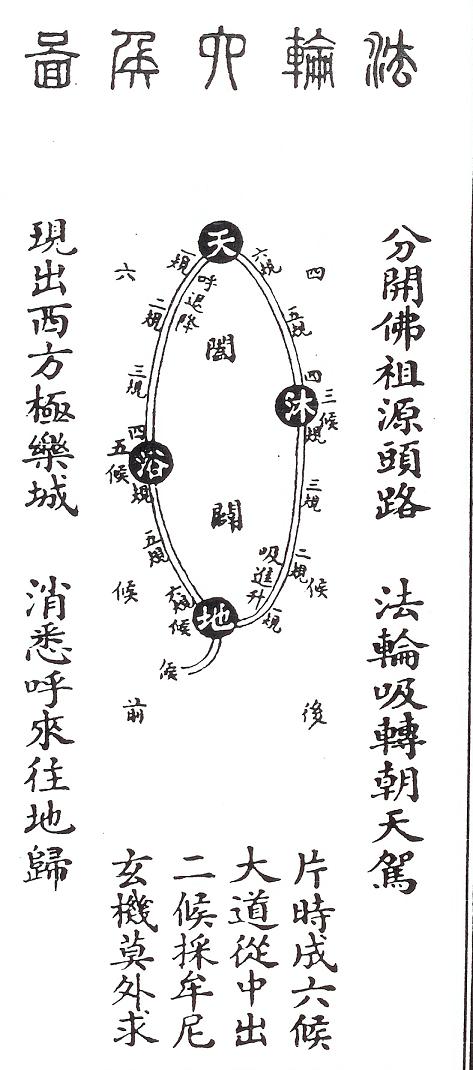 法輪六候圖
分開佛祖源頭路
法輪吸轉朝天駕
天
六規
五規
四規
沐
三候
三規
二規
一規
吸進升
四
候
後
闔
闢
地
一規
呼退降
二規
三規
四規
五候
浴
五規
六規
候
候
六
候
前
現出西方極樂城
消悉呼來往地歸
片時成六候
大道從中出
二候採牟尼
玄機莫外求